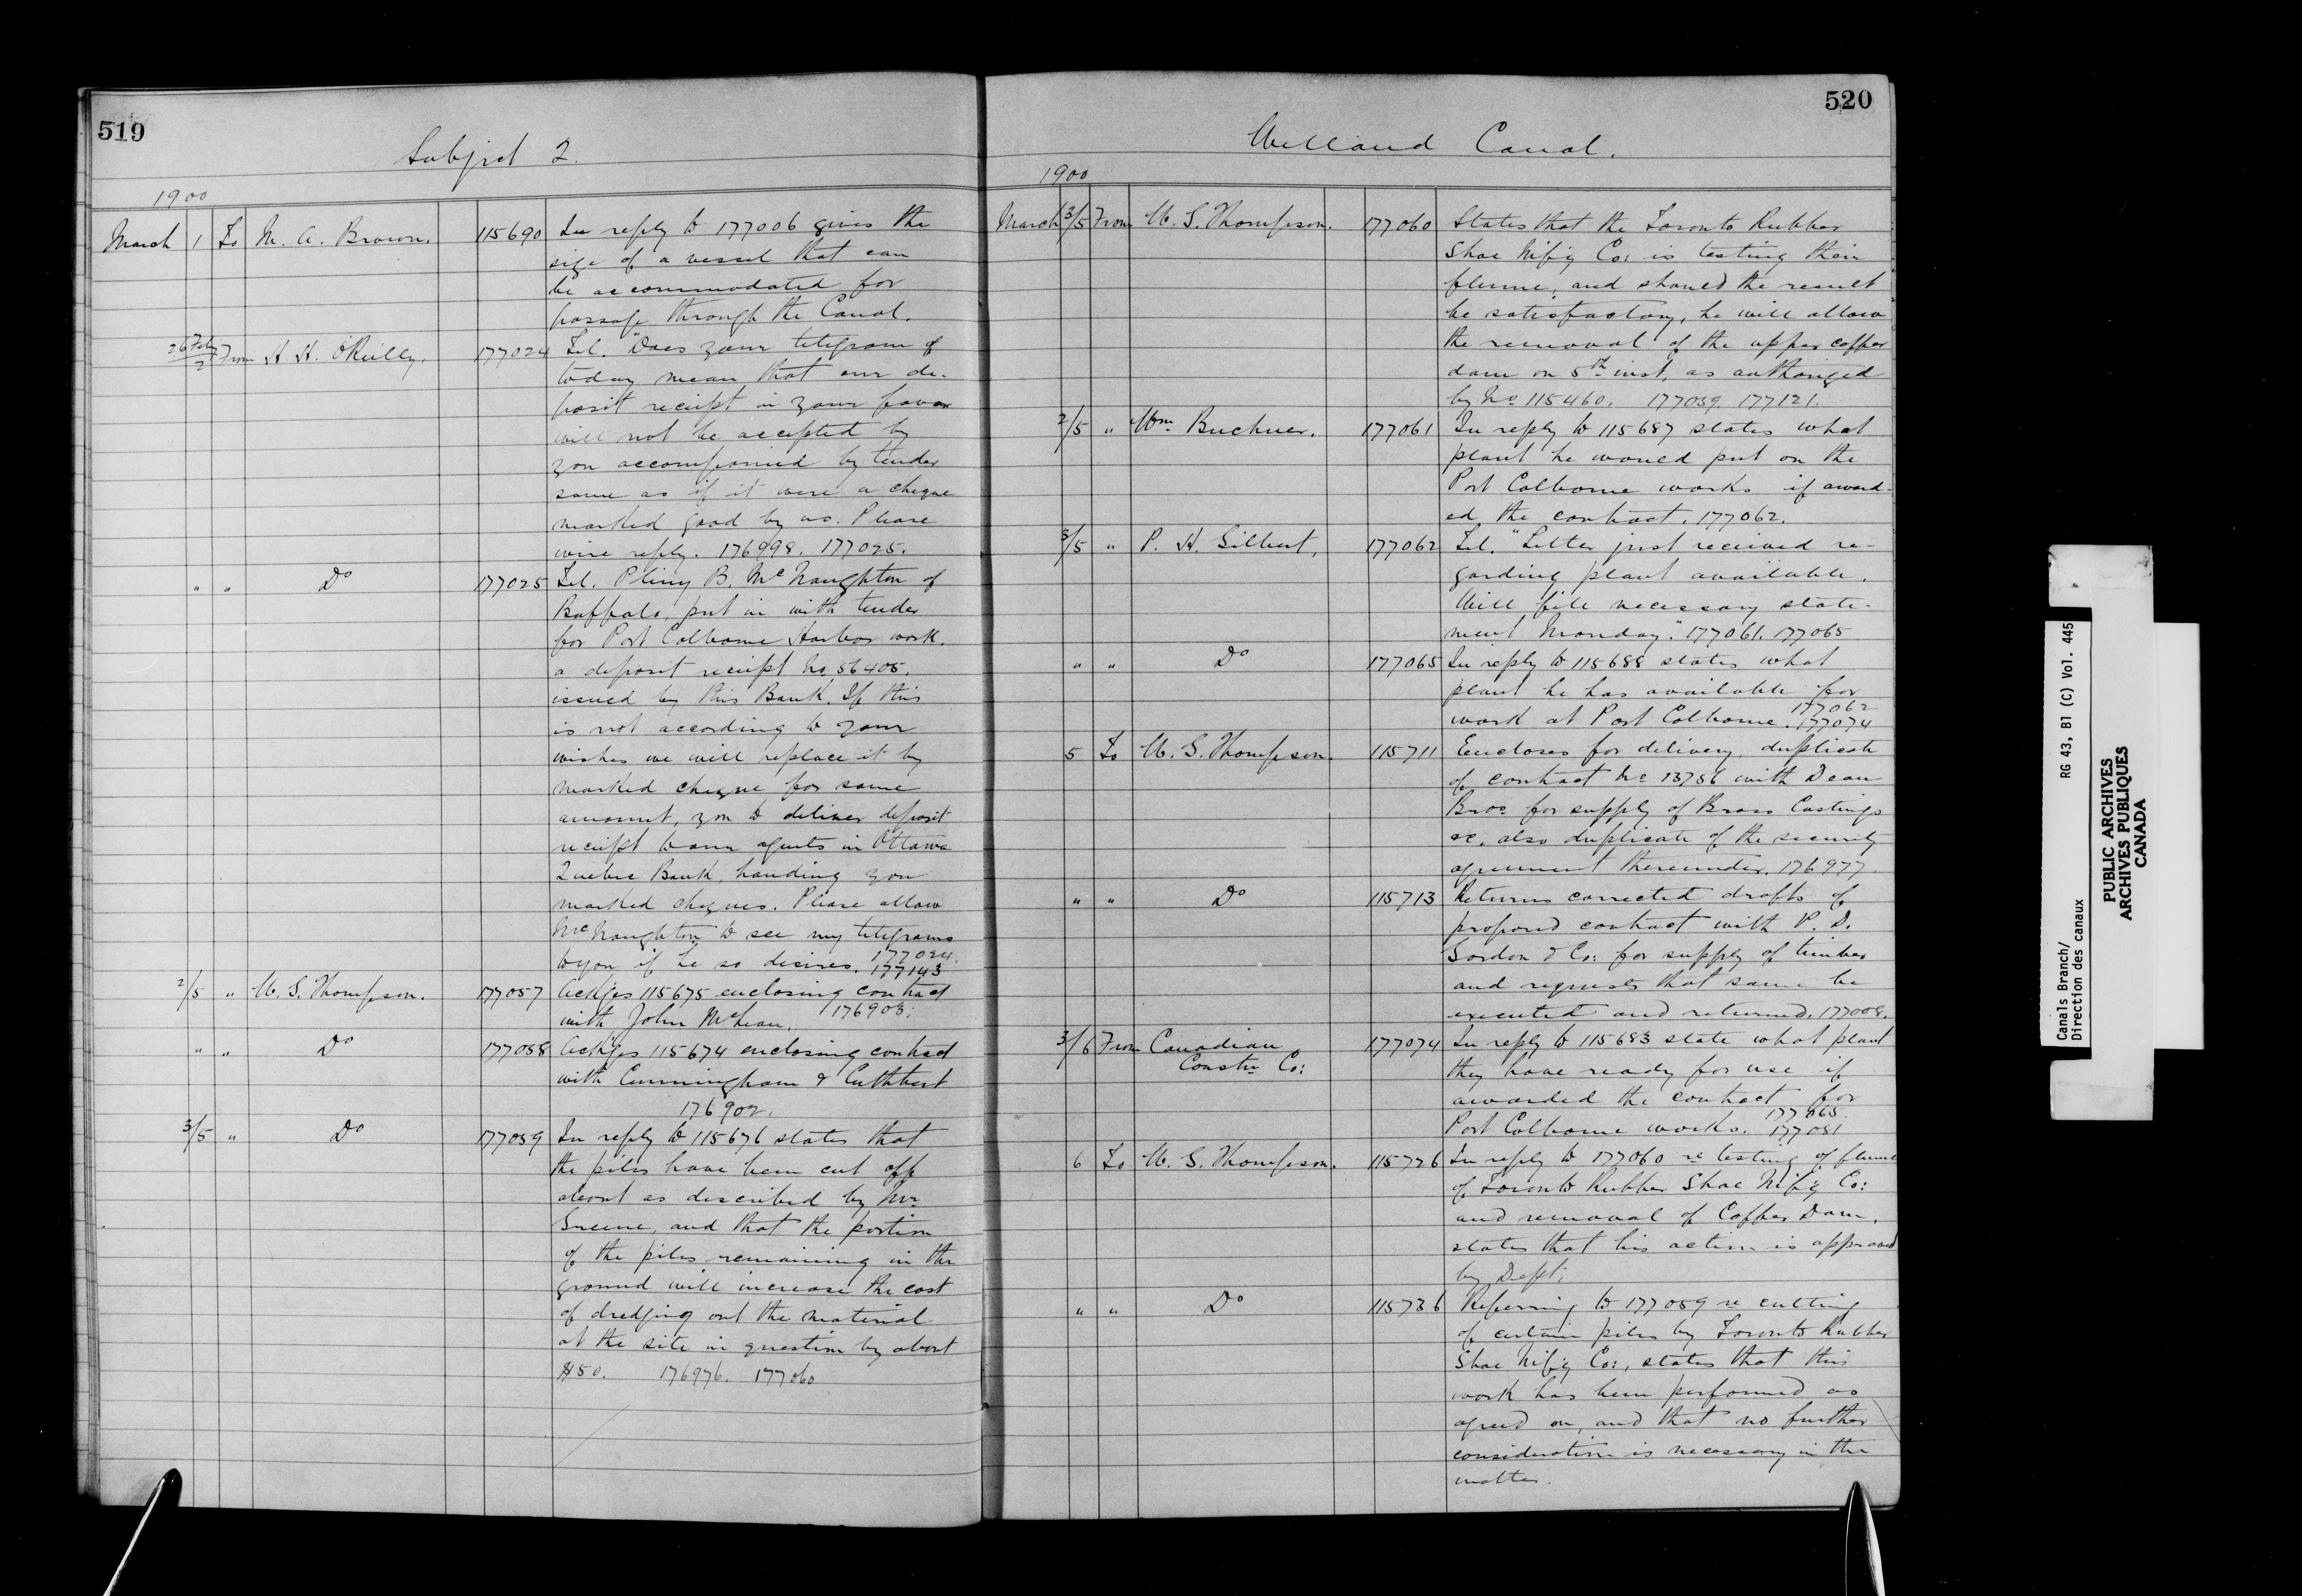 519
Subject 2.
1900
March 1 To M. A. Brown. 115690 In reply to 177006 gives the
size of a vessel that can
be accommodated for
passage through the Canal.
26 Feby/2 From H. H. O'Reilly. 177024 Tel. "Does your telegram of
today mean that our de-
posit receipt in your favor
will not be accepted by
you accompanied by tender
same as if it were a cheque
marked good by us. Please
wire reply. 176998. 177025.
" " Do 177025 Tel. Pliny B. McNaughton of
Buffalo, put in with tender
for Port Colborne Harbor work.
a deposit receipt No. 56405.
issued by this Bank. If this
is not according to your
wishes we will replace it by
marked cheque for same
amount, you to deliver deposit
receipt to our agents in Ottawa
Quebec Bank, handing you
marked cheques. Please allow
McNaughton to see my telegrams
to you if he so desires. 177024. 177143
2/5 " W. G. Thompson. 177057 Ackges 115675 enclosing contract
with John McLean. 176903.
" " Do 177058 Ackges 115674 enclosing contract
with Cunningham & Cuthbert
176902.
3/5 " Do 177059 In reply to 115676 states that
the piles have been cut off
about as described by Mr.
Greene, and that the portion
of the piles remaining in the
ground will increase the cost
of dredging out the material
at the site in question by about
$50. 176976. 177060
520
Welland Canal.
1900
March 3/5 From W. G. Thompson. 177060 States that the Toronto Rubber
Shoe Mf'g Co: is testing their
flume, and should the result
be satisfactory, he will allow
the removal of the upper coffer
dam on 5th inst. as authorized
by No 115460. 177059. 177121.
2/5 " Wm. Buchner. 177061 In reply to 115687 states what
plant he would put on the
Port Colborne works if award-
ed the contract. 177062.
3/5 " P. H. Gilbert. 177062 Tel. "Letter just received re-
garding plant available.
Will file necessary state-
ment Monday." 177061. 177065
" " Do 177065 In reply to 115688 states what
plant he has available for
work at Port Colborne. 177062 177074
5 To W. G. Thompson. 115711 Encloses for delivery, duplicate
of contract No 13756 with Dean
Bros. for supply of Brass Castings
&c. also duplicate of the security
agreement thereunder. 176977
" " Do 115713 Returns corrected drafts of
proposed contract with P. D.
Gordon & Co: for supply of timber
and requests that same be
executed and returned. 177008.
3/6 From Canadian
Constn Co: 177074 In reply to 115683 state what plant
they have ready for use if
awarded the contract for
Port Colborne works. 177065. 177081
6 To W. G. Thompson. 115726 In reply to 177060 re testing of flume
of Toronto Rubber Shoe Mf'g Co:
and removal of Coffer Dam,
states that his action is approved
by Dept.
" " Do 115736 Referring to 177059 re cutting
of certain piles by Toronto Rubber
Shoe Mf'g Co:, states that this
work has been performed as
agreed on, and that no further
consideration is necessary in the
matter.
Canals Branch/ RG 43, B1 (C) Vol. 445
Direction des canaux
PUBLIC ARCHIVES
ARCHIVES PUBLIQUES
CANADA